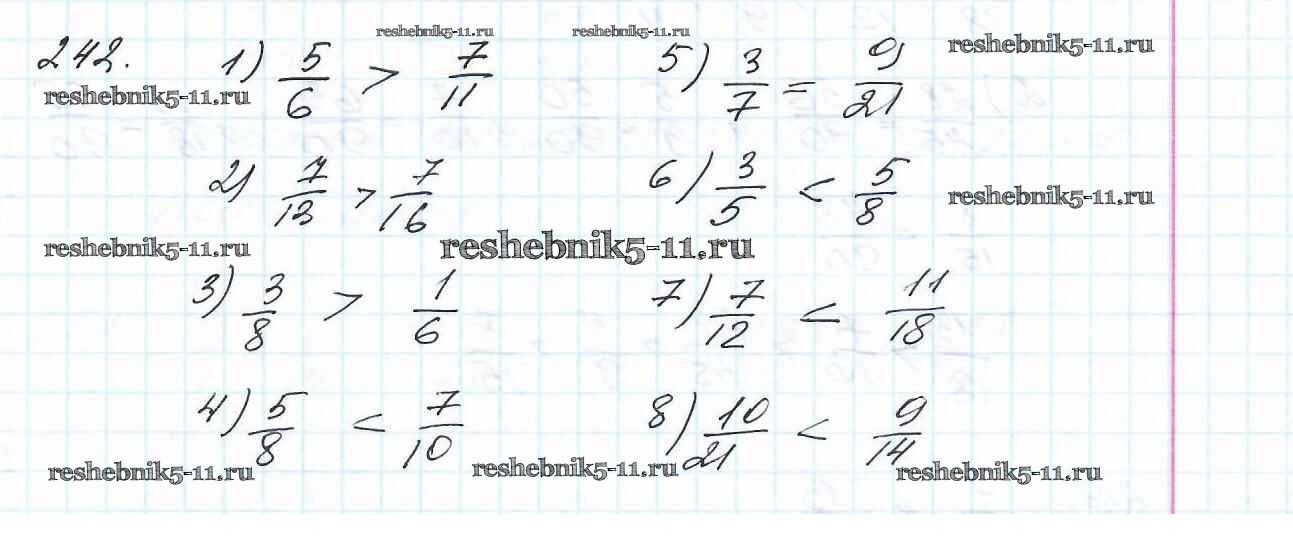 reshebnik5-11.ru reshebnik5-11.ru reshebnik5-11.ru
242. 1) 5/6 > 7/11 5) 3/7 = 9/21
reshebnik5-11.ru
2) 7/13 > 7/16 6) 3/5 < 5/8
reshebnik5-11.ru
reshebnik5-11.ru reshebnik5-11.ru
3) 3/8 > 1/6 7) 7/12 < 11/18
4) 5/8 < 7/10 8) 10/21 < 9/14
reshebnik5-11.ru reshebnik5-11.ru reshebnik5-11.ru